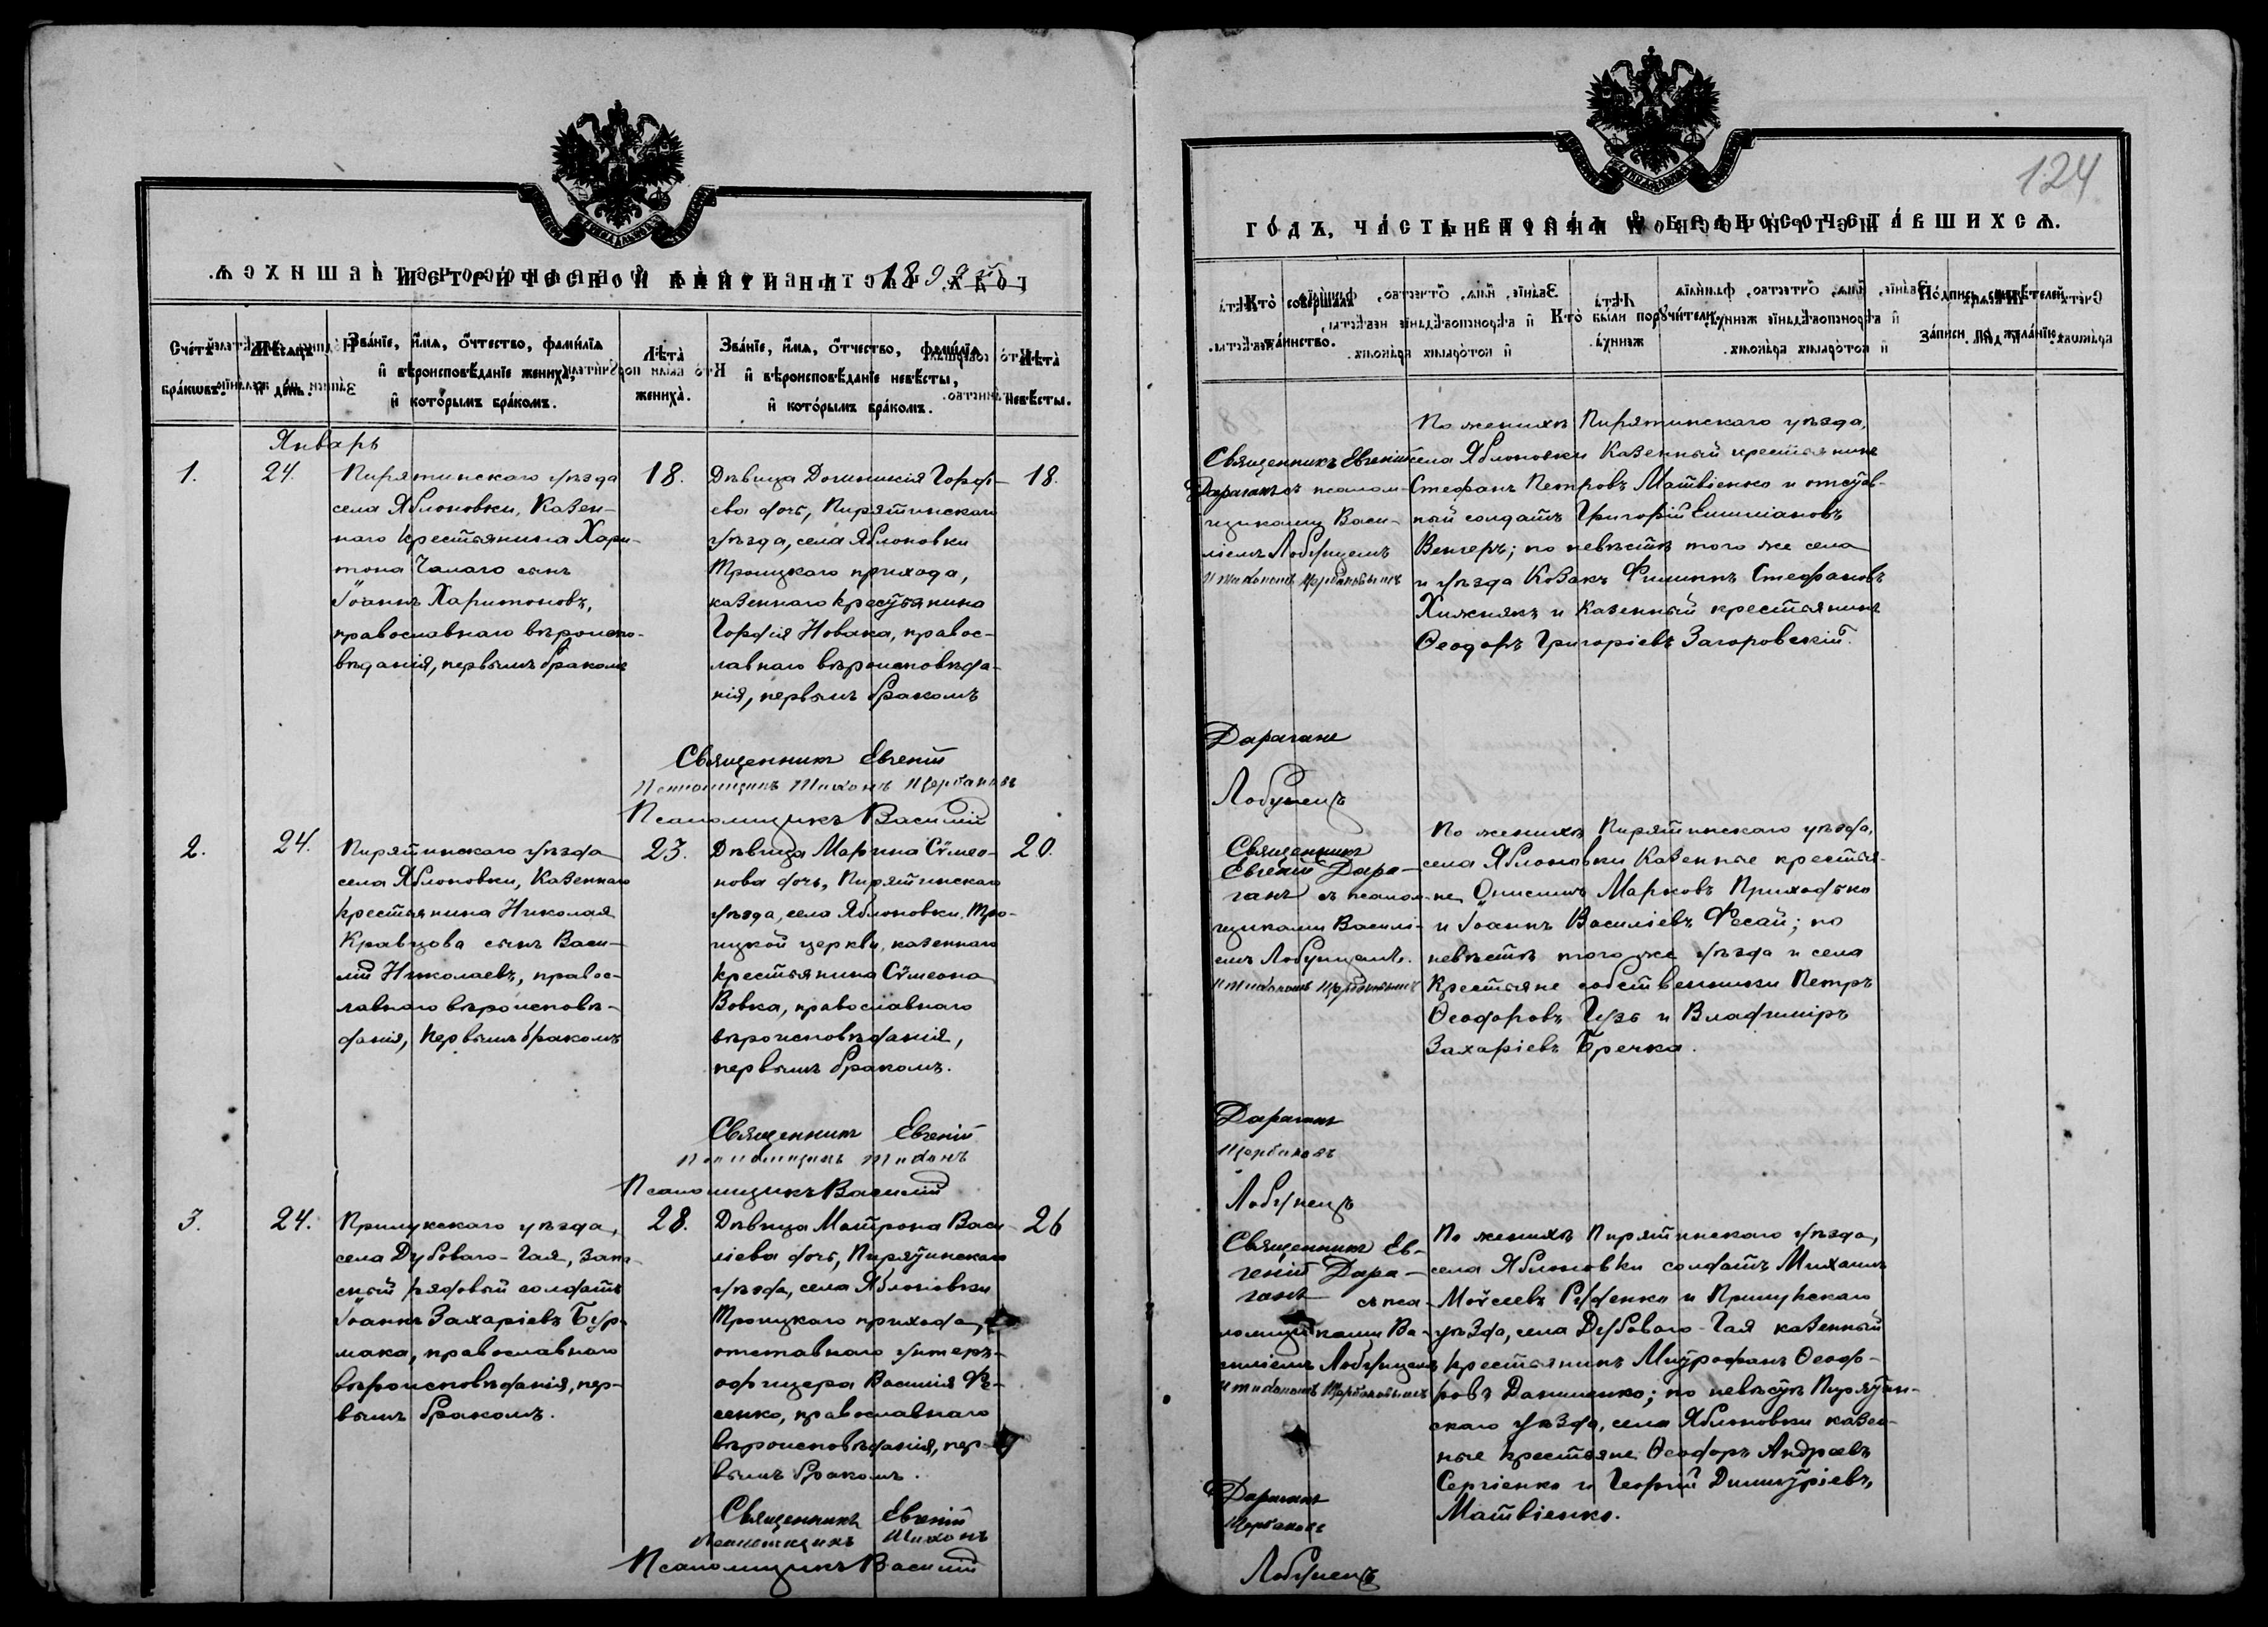 124
1899
Счётъ бра́кѡвъ.
Мѣсяцъ и день.
Зва́нїе, и́мѧ, о́тчество, фами́лїѧ
и҆ вѣроисповѣ́данїе жениха̀,
и҆ кото́рымъ бра́комъ.
Лѣ̀та
жениха̀.
Зва́нїе, и́мѧ, о́тчество, фами́лїѧ
и҆ вѣроисповѣ́данїе невѣ́сты,
и҆ кото́рымъ бра́комъ.
Лѣ̀та
невѣ́сты.
Январь
1.
24.
Пирятинскаго уѣзда
села Яблоновки, Казен-
наго крестьянина Хари-
тона Чалаго сынъ
Іоаннъ Харитоновъ,
православнаго вѣроиспо-
вѣданія, первымъ бракомъ
18.
Дѣвица Домникія Горди-
ева дочь, Пирятинскаго
уѣзда, села Яблоновки
Троицкаго прихода,
казеннаго крестьянина
Гордія Новака, правос-
лавнаго вѣроисповѣда-
нія, первымъ бракомъ
18.
Священникъ Евгеній
Псаломщикъ Тихонъ Щербаковъ
Псаломщикъ Василій
2.
24.
Пирятинскаго уѣзда
села Яблоновки, Казеннаго
крестьянина Николая
Кравцова сынъ Васи-
лій Николаевъ, правос-
лавнаго вѣроисповѣ-
данія, первымъ бракомъ
23.
Дѣвица Марина Сѵмео-
нова дочь, Пирятинскаго
уѣзда, села Яблоновки, Тро-
ицкой церкви, казеннаго
крестьянина Сѵмеона
Вовка, православнаго
вѣроисповѣданія,
первымъ бракомъ.
20.
Священникъ Евгеній
Псаломщикъ Тихонъ
Псаломщикъ Василій
3.
24.
Прилукскаго уѣзда,
села Дубоваго-Гая, запа-
сный рядовый солдатъ
Іоаннъ Захаріевъ Бур-
мака, православнаго
вѣроисповѣданія, пер-
вымъ бракомъ.
28.
Дѣвица Матрона Васи-
ліева дочь, Пирятинскаго
уѣзда, села Яблоновки
Троицкаго прихода,
отставнаго унтеръ-
офицера Василія Фе-
сенко, православнаго
вѣроисповѣданія, пер-
вымъ бракомъ.
26
Священникъ Евгеній
Псаломщикъ Тихонъ
Псаломщикъ Василій
го́дъ, ча́сть втора́ѧ ѡ҆ бракосочета́вшихсѧ.
Кто̀ соверша́лъ
та́инство.
Кто̀ бы́ли поручи́тели.
По́дпись свидѣ́телей
за́писи по жела́нїю.
Священникъ Евгеній
Дараганъ съ псалом-
щиками Васи-
ліемъ Лобунцемъ
и Тихономъ Щербаковымъ
По женихѣ Пирятинскаго уѣзда,
села Яблоновки Казенный крестьянинъ
Стефанъ Петровъ Матвіенко и отстав-
ный солдатъ Григорій Емиліановъ
Венгеръ; по невѣстѣ того же села
и уѣзда Козакъ Филиппъ Стефановъ
Хижнякъ и Казенный крестьянинъ
Ѳеодоръ Григоріевъ Загоровскій.
Дараганъ
Лобунецъ
Священникъ
Евгеній Дара-
ганъ съ псалом-
щиками Василі-
емъ Лобунцемъ.
и Тихономъ Щербаковымъ
По женихѣ Пирятинскаго уѣзда,
села Яблоновки Казенные крестья-
не Онисимъ Марковъ Приходько
и Іоаннъ Василіевъ Фесай; по
невѣстѣ того же уѣзда и села
Крестьяне собственники Петръ
Ѳеодоровъ Гузь и Владиміръ
Захаріевъ Гречка.
Дараганъ
Щербаковъ
Лобунецъ
Священникъ Ев-
геній Дара-
ганъ съ пса-
ломщиками Ва-
силіемъ Лобунцемъ
и Тихономъ Щербаковымъ
По женихѣ Пирятинскаго уѣзда,
села Яблоновки солдатъ Михаилъ
Моѵсеевъ Руденко и Прилукскаго
уѣзда, села Дубоваго-Гая казенный
крестьянинъ Митрофанъ Ѳеодо-
ровъ Даниленко; по невѣстѣ Пирятин-
скаго уѣзда, села Яблоновки казен-
ные крестьяне Ѳеодоръ Андреевъ
Сергіенко и Георгій Димитріевъ,
Матвіенко.
Дараганъ
Щербаковъ
Лобунецъ